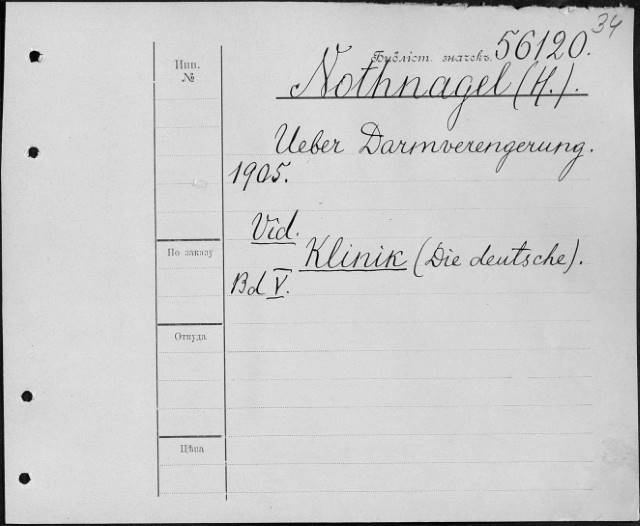 34
Библіот. значекъ. 56120.
Инв.
№
Nothnagel (H.).
Ueber Darmverengerung.
1905.
Vid.
По заказу
Klinik (Die deutsche).
Bd V.
Откуда
Цѣна